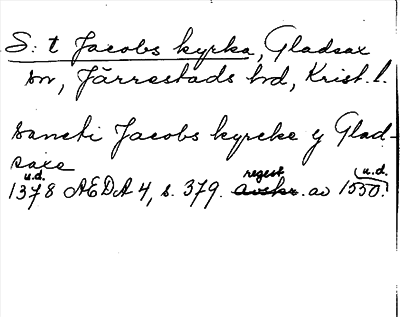 S:t Jacobs kyrka, Gladsax
sn, Järrestads hd, Krist. l.
sancti Jacobs kyrcke y Glad-
saxe
u.d. regest u.d.
1378 AEDA 4, s. 379. avskr. av 1550.